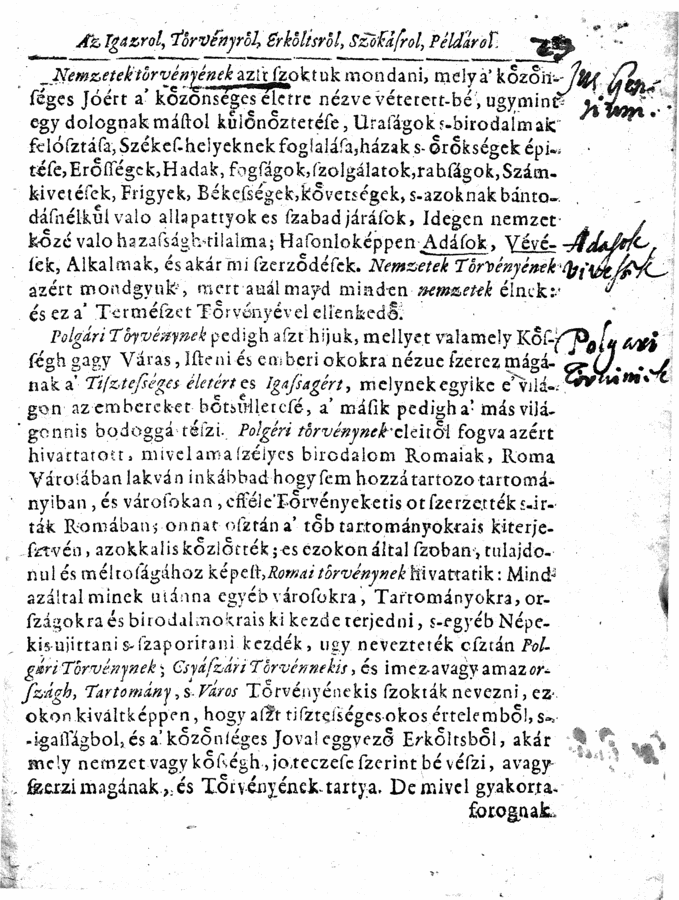 Az Igazrol, To̊rve̊nyro̊l, Erko̊ltsro̊l, Szokásrol, Példárol.
Nemzetek to̊rvényének azit szoktuk mondani, mely a' ko̊zo̊n-
séges Jóért a' ko̊zo̊nséges életre nézve vétetett-bé, ugymint
egy dolognak mástol kůlo̊no̊ztetése, Uraságok s-birodalmak
felósztása, Székes-helyeknek foglalása, házak s-o̊ro̊kségek épi-
tése, Ero̊sségek, Hadak, fogságok, szolgálatok, rabságok, Szám-
kivetések, Frigyek, Békességek, ko̊vetségek, s-azoknak bánto-
dásnélkůl valo allapattyok es szabad járások, Idegen nemzet
ko̊zé valo hazasságh-tilalma; Hasonloképpen Adások, Vévé-
sek, Alkalmak, és akár mi szerzo̊dések. Nemzetek To̊rvényének
azért mondgyuk, mert avál mayd minden nemzetek élnek:
és ez a' Természet To̊rvényével ellenkedo̊.
Polgári To̊rvénynek pedigh aszt hijuk, mellyet valamely Ko̊s-
ségh gagy Váras, Isteni és emberi okokra nézve szerez mágá-
nak a' Tisztességes életért es Igasságért, melynek egyike e' vilá-
gon az embereket bo̊tsůlletesé, a' másik pedigh a' más vilá-
gonnis bodoggá tészi. Polgéri to̊rvénynek eleito̊l fogva azért
hivattatott, mivel ama szélyes birodalom Romaiak, Roma
Városában lakván inkábbad hogysem hozzá tartozo tartomá-
nyiban, és városokan, efféle To̊rvényeketis ot szerzették s-ir-
ták Romában; onnat osztán a' to̊b tartományokrais kiterje-
sztvén, azokkalis ko̊zlo̊tték; es ezokon által szoban, tulajdo-
nul és méltoságához képest, Romai to̊rvénynek hivattatik: Mind-
azáltal minek utánna egyéb városokra, Tartományokra, or-
szágokra és birodalmokrais ki kezde terjedni, s-egyéb Népe-
kis ujittani s-szaporitani kezdék, ugy nevezteték osztán Pol-
gári To̊rvénynek; Csyászári To̊rvénnekis, és imez avagy amaz or-
szágh, Tartomány, s Város To̊rvényénekis szokták nevezni, ez
okon kiváltképpen, hogy aszt tisztességes okos értelembo̊l, s-
-igasságbol, és a' ko̊zo̊nséges Joval eggyezo̊ Erko̊ltsbo̊l, akár
mely nemzet vagy ko̊sségh, jo teczese szerint bé vészi, avagy
szerzi magának, és To̊rvényének tartya. De mivel gyakorta
forognak
Jus Gen-
tium.
Adasok
vivesők
Polgari
Törviniek